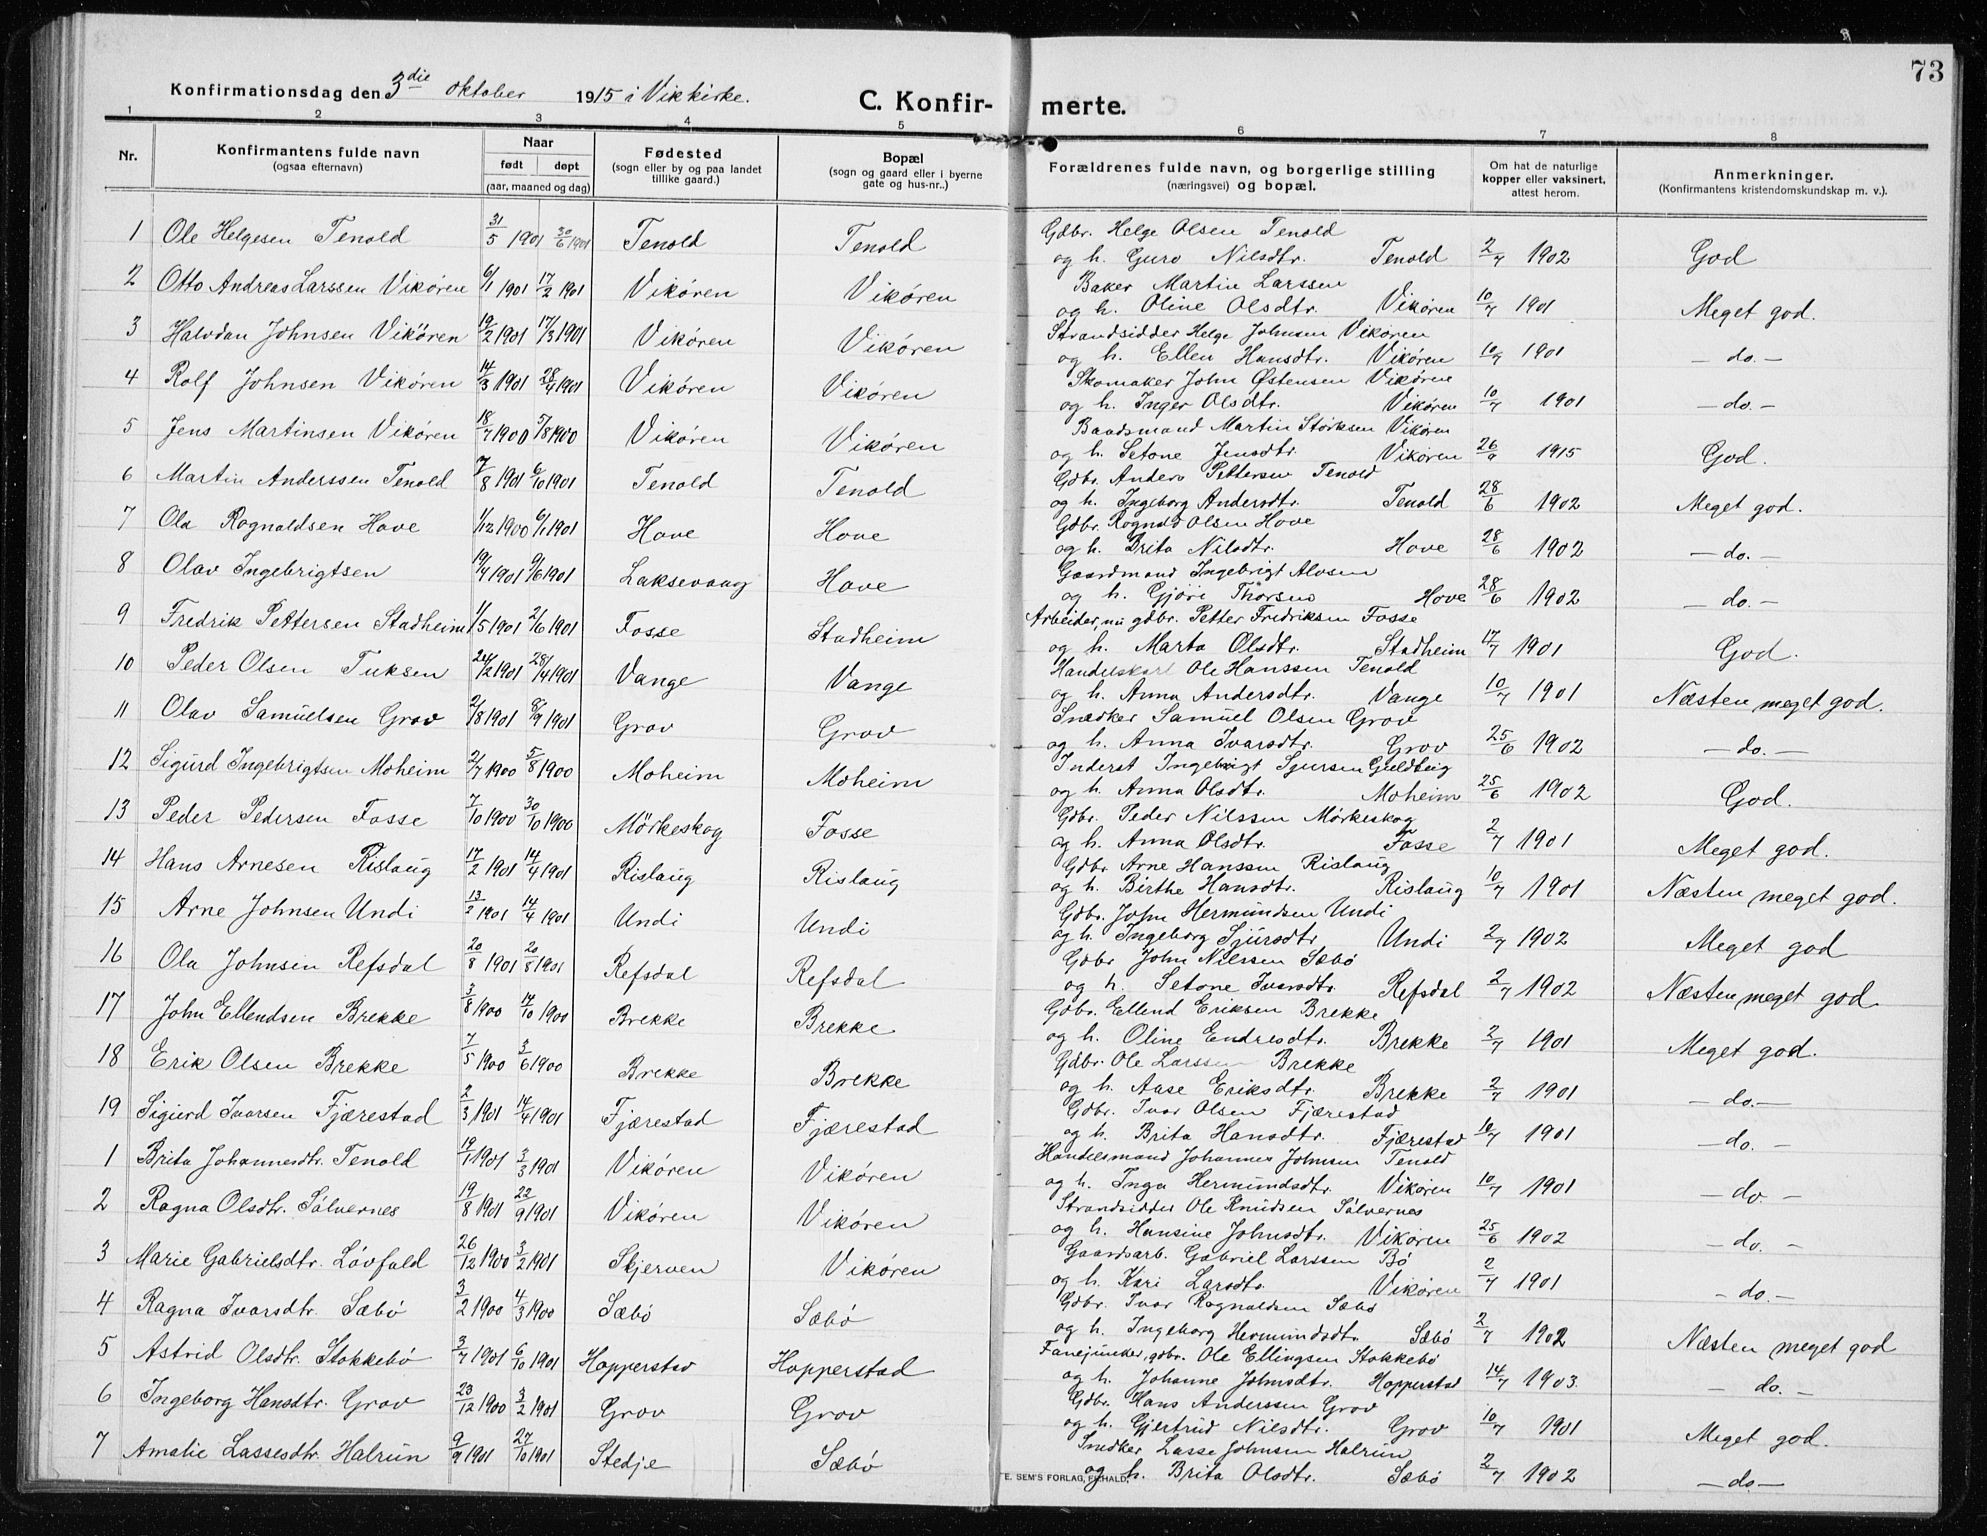 73
Konfirmationsdag den 3die oktober 1915 i Vik kirke.
C. Konfir- merte.
1 2 3 4 5 6 7 8
Nr. Konfirmantens fulde navn (ogsaa efternavn) Naar født døpt (aar, maaned og dag) Fødested (sogn eller by og paa landet tillike gaard.) Bopæl (sogn og gaard eller i byerne gate og hus-nr..) Forældrenes fulde navn, og borgerlige stilling (næringsvei) og bopæl. Om hat de naturlige kopper eller vaksinert, attest herom. Anmerkninger. (Konfirmantens kristendomskundskap m. v.).
1 Ole Helgesen Tenold 31/5 1901 30/6 1901 Tenold Tenold Gdbr. Helge Olsen Tenold
og h. Guro Nilsdtr. Tenold 2/7 1902 God
2 Otto Andreas Larssen Vikøren 6/1 1901 17/2 1901 Vikøren Vikøren Baker Martin Larssen
og h. Oline Olsdtr. Vikøren 10/7 1901 Meget god.
3 Halvdan Johnsen Vikøren 19/2 1901 17/3 1901 Vikøren Vikøren Strandsidder Helge Johnsen Vikøren
og h. Ellen Hansdtr. Vikøren 10/9 1901 - do. -
4 Rolf Johnsen Vikøren 14/3 1901 28/4 1901 Vikøren Vikøren Skomaker John Østensen Vikøren
og h. Inger Olsdtr. Vikøren 10/7 1901 - do. -
5 Jens Martinsen Vikøren 18/7 1900 5/8 1900 Vikøren Vikøren Baadsmand Martin Størksen Vikøren
og h. Setone Jensdtr. Vikøren 26/9 1915 God.
6 Martin Anderssen Tenold 7/8 1901 6/10 1901 Tenold Tenold Gdbr. Anders Pettersen Tenold
og h. Ingeborg Andersdtr. Tenold 28/6 1902 Meget god.
7 Ola Rognaldsen Hove 1/12 1900 6/1 1901 Hove Hove Gdbr. Rognald Olsen Hove
og h. Brita Nilsdtr. Hove 28/6 1902 - do. -
8 Olav Ingebrigtsen 19/4 1901 9/6 1901 Laksevaag Hove Gaardmand Ingebrigt Alvsen
og h. Gjøri Thorsen Hove 28/6 1902 - do. -
9 Fredrik Pettersen Stadheim 1/5 1901 2/6 1901 Fosse Stadheim Arbeider, nu gdbr. Petter Fredriksen Fosse
og h. Marta Olsdtr. Stadheim 17/7 1901 God.
10 Peder Olsen Tuksen 24/2 1901 28/4 1901 Vange Vange Handelskarl Ole Hanssen Tenold
og h. Anna Andersdtr. Vange 10/7 1901 Næsten meget god.
11 Olav Samuelsen Grov 2/8 1901 8/9 1901 Grov Grov Snedker Samuel Olsen Grov
og h. Anna Ivarsdtr. Grov 25/6 1902 - do. -
12 Sigurd Ingebrigtsen Moheim 2/7 1900 5/8 1900 Moheim Moheim Inderst Ingebrigt Sjursen Guldteig
og h. Anna Olsdtr. Moheim 25/6 1902 God.
13 Peder Pedersen Fosse 7/10 1900 30/10 1900 Mørkeskog Fosse Gdbr. Peder Nilssen Mørkeskog
og h. Anna Olsdtr. Fosse 2/7 1901 Meget god.
14 Hans Arnesen Rislaug 17/2 1901 14/4 1901 Rislaug Rislaug Gdbr. Arne Hanssen Rislaug
og h. Birthe Hansdtr. Rislaug 10/7 1901 Næsten meget god.
15 Arne Johnsen Undi 13/2 1901 14/4 1901 Undi Undi Gdbr. John Hermundsen Undi
og h. Ingeborg Sjursdtr Undi 2/7 1902 Meget god
16 Ola Johnsen Refsdal 20/8 1901 20/8 1901 Refsdal Refsdal Gdbr John Nilssen Sæbø
og h. Setone Ivarsdtr Refsdal 2/7 1902 Næsten meget god.
17 John Ellendsen Brekke 3/8 1900 14/10 1900 Brekke Brekke Gdbr. Ellend Eriksen Brekke
og h. Oline Endresdtr. Brekke 2/7 1901 Meget god.
18 Erik Olsen Brekke 7/5 1900 3/6 1900 Brekke Brekke Gdbr. Ole Larssen Brekke
og h. Aase Eriksdtr. Brekke 2/7 1901 - do. -
19 Sigurd Ivarsen Fjærestad 2/3 1901 14/4 1901 Fjærestad Fjærestad Gdbr. Ivar Olsen Fjærestad
og h. Brita Hansdtr. Fjærestad 10/7 1901 - do.
1 Brita Johannesdtr. Tenold 19/1 1901 3/3 1901 Vikøren Vikøren Handelsmand Johannes Johnsen Tenold
og h. Inga Hermundsdtr. Vikøren 10/7 1901 - do. -
2 Ragna Olsdtr. Sålvernes 19/8 1901 22/9 1901 Vikøren Vikøren Strandsidder Ole Knudsen Sålvernes
og h. Hansine Johnsdtr. Vikøren 25/6 1902 - do. -
3 Marie Gabrielsdtr. Løvfald 26/12 1900 3/2 1901 Skjerven Vikøren Gaardsarb. Gabriel Larssen Bø
og h. Kari Larsdtr. Vikøren 2/7 1901 - do. -
4 Ragna Ivarsdtr. Sæbø 3/2 1900 4/3 1900 Sæbø Sæbø Gdbr. Ivar Rognaldsen Sæbø
og h. Ingeborg Hermundsdtr. Sæbø 2/7 1902 Næsten meget god
5 Astrid Olsdtr. Stokkebø 3/7 1901 6/10 1901 Hopperstad Hopperstad Fanejunker, gdbr. Ole Ellingsen Stokkebø
og h. Johanne Johnsdtr. Hopperstad 14/7 1903. - do. -
6 Ingeborg Hansdtr. Grov 23/12 1900 3/2 1901 Grov Grov Gdbr. Hans Anderssen Grov
og h. Gjertrud Nilsdtr. Grov 10/7 1901 Meget god.
7 Amalie Lassesdtr. Halrun 9/9 1901 27/10 1901 Stedje Sæbø Snedker Lasse Johnsen Halrun
og h. Brita Olsdtr. Sæbø 2/7 1902 - do -
E. SEM'S FORLAG, FR.HALD.